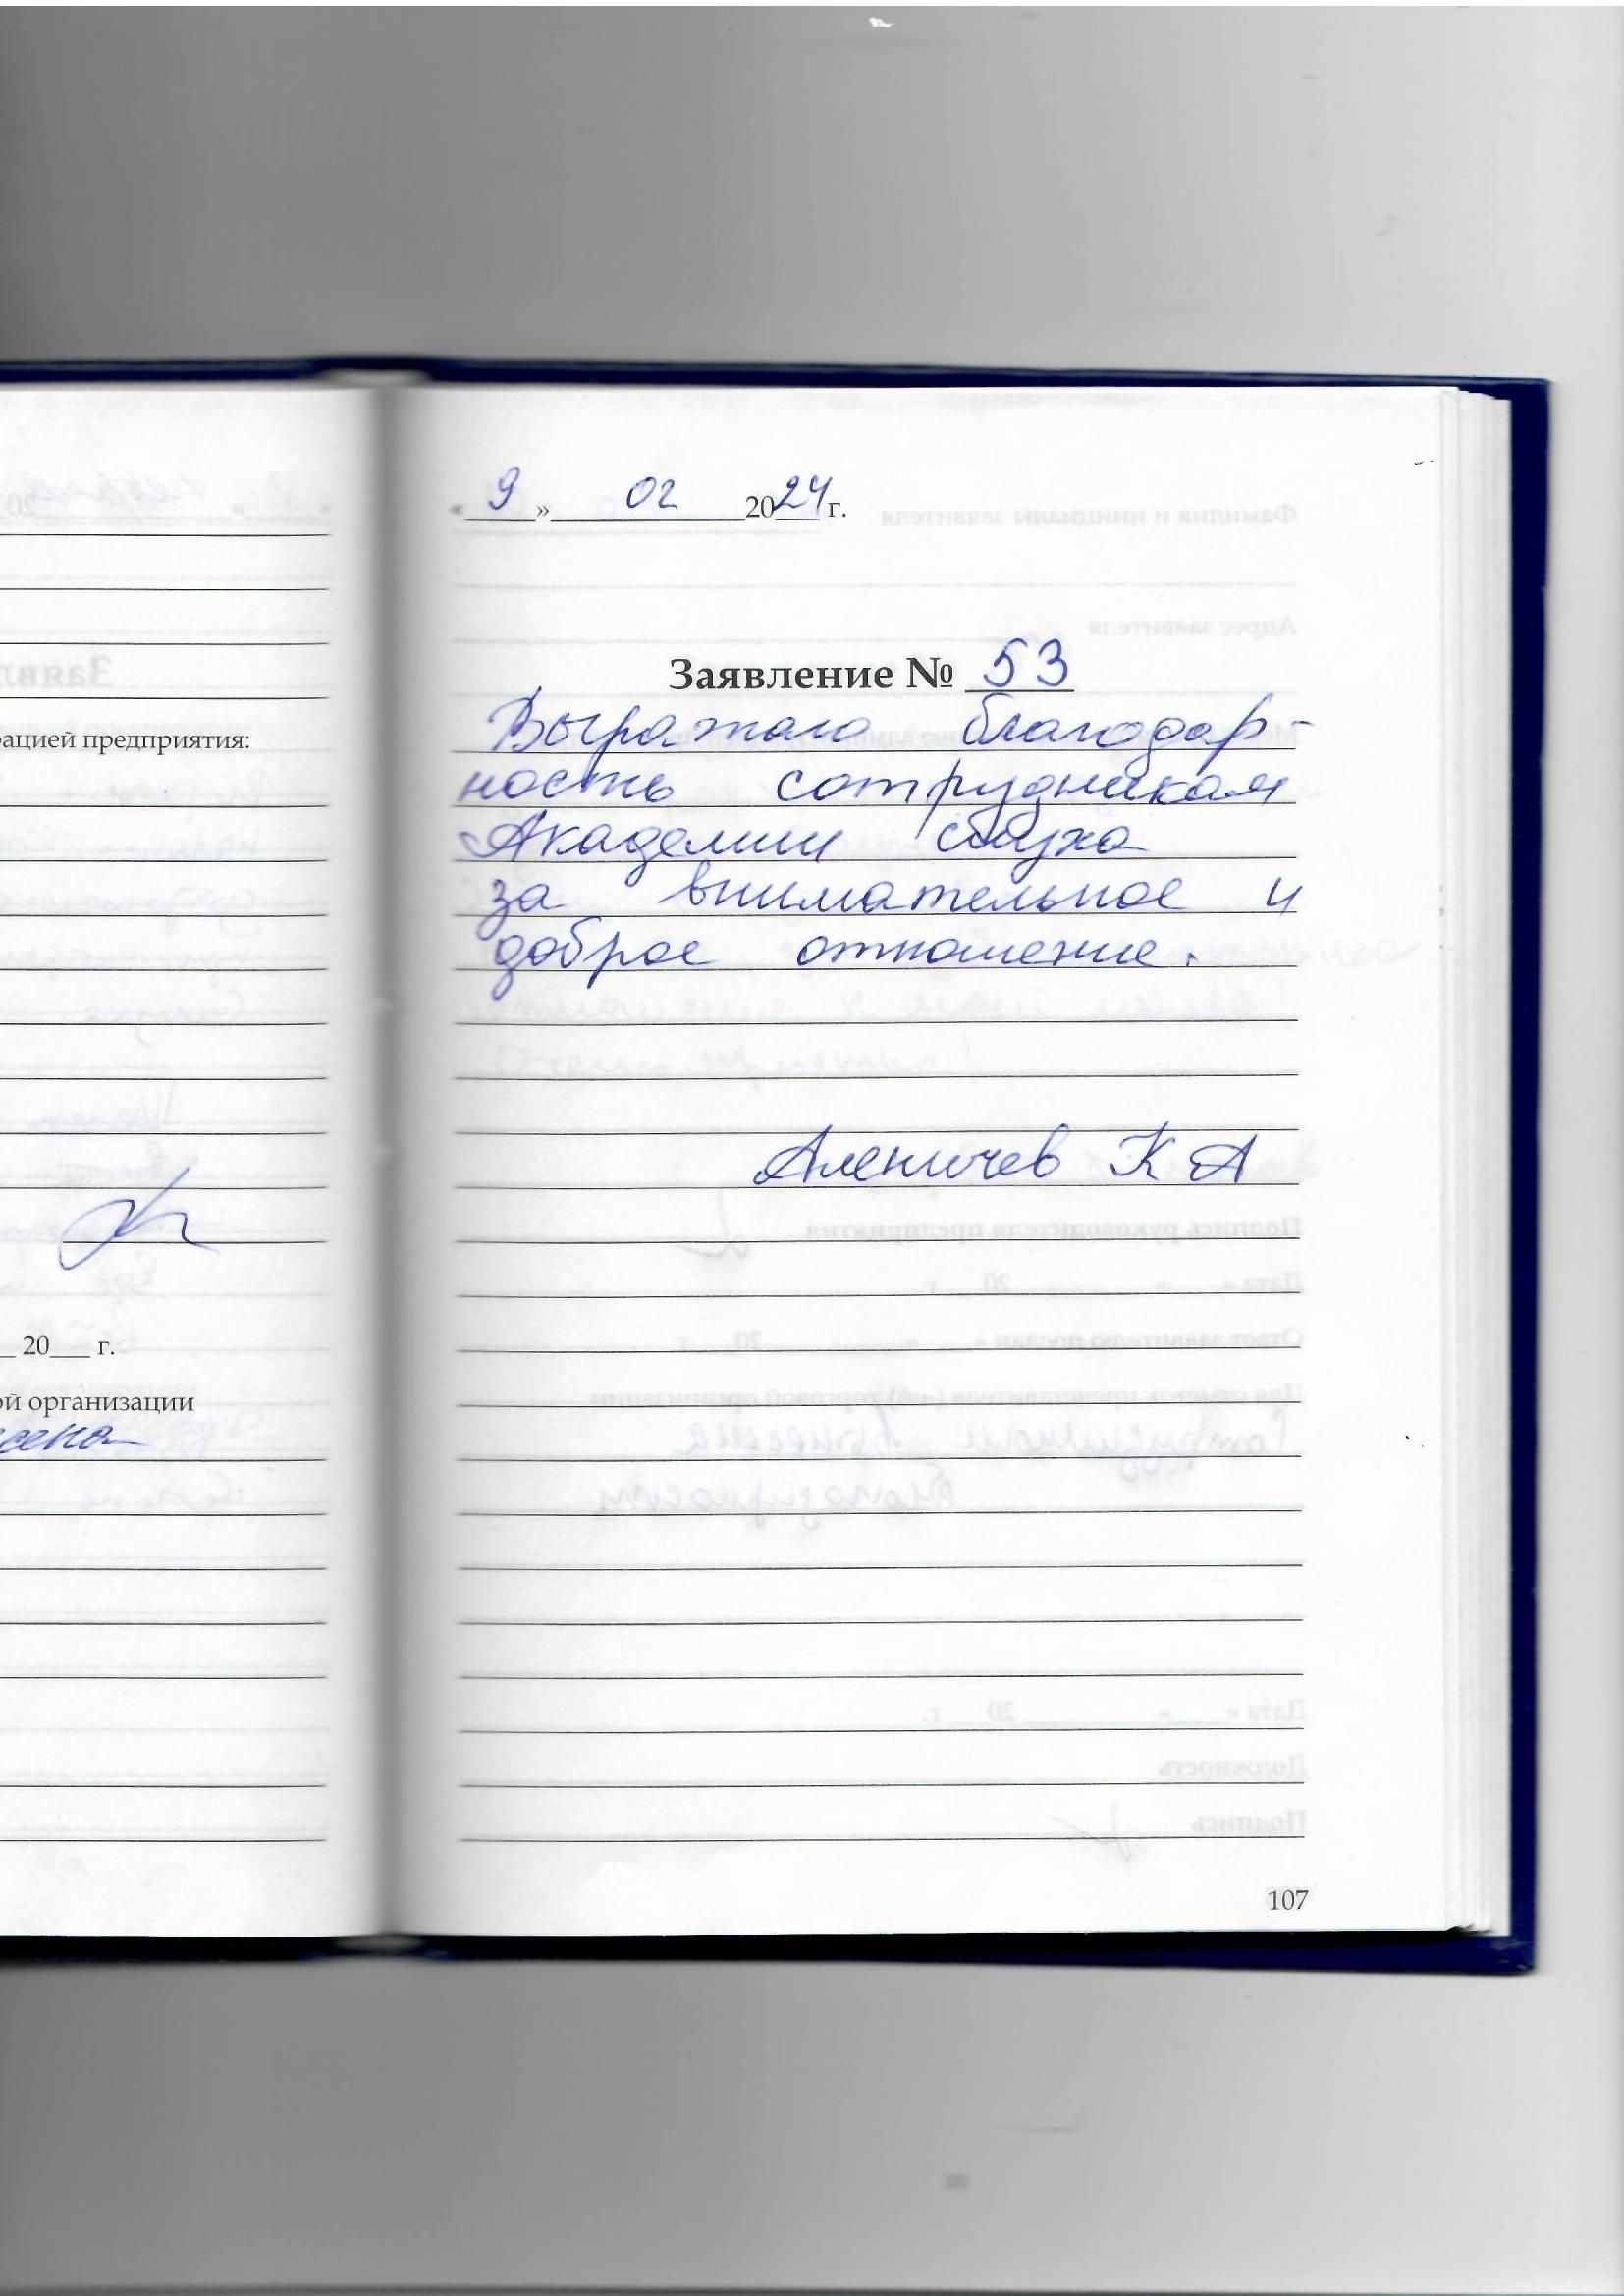 рацией предприятия:
20___ г.
ой организации
« 9 » 02 2024 г.
Заявление № 53
Выражаю благодар-
ность сотрудникам
Академии слуха
за внимательное и
доброе отношение.
Аленичев К А
107